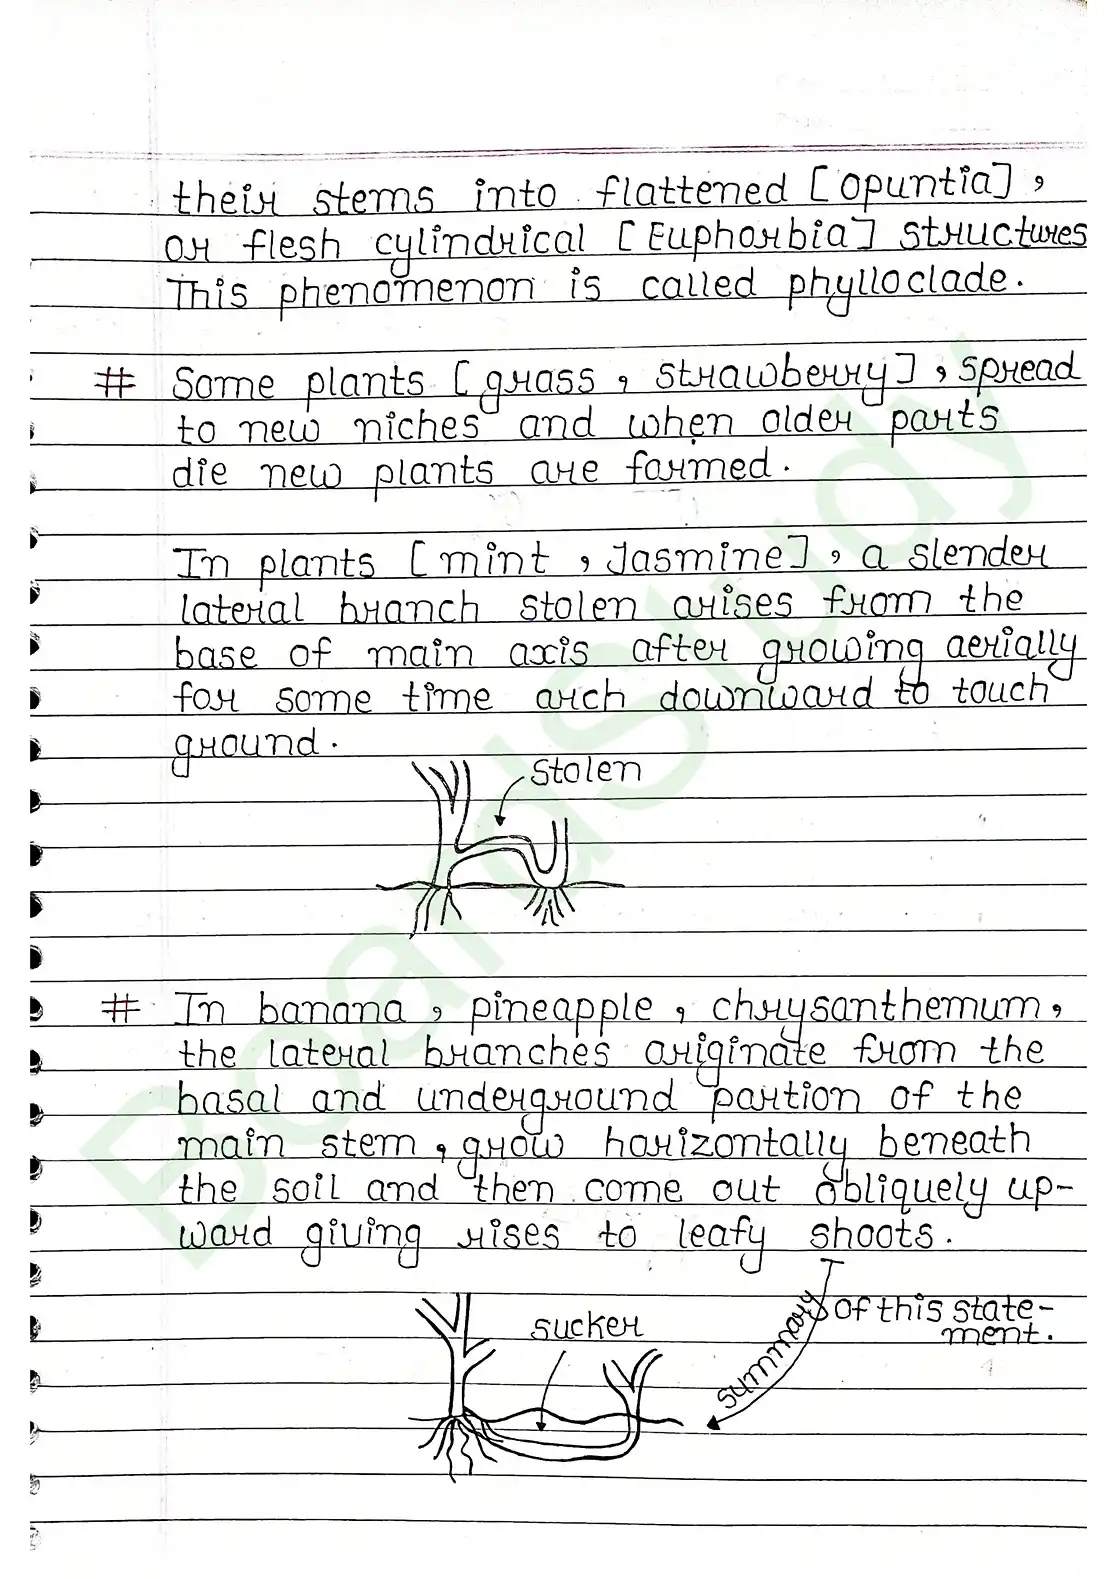 their stems into flattened [opuntia],
or flesh cylindrical [Euphorbia] structures
This phenomenon is called phylloclade.
# Some plants [grass, strawberry], spread
to new niches and when older parts
die new plants are formed.
In plants [mint, Jasmine], a slender
lateral branch stolen arises from the
base of main axis after growing aerially
for some time arch downward to touch
ground.
stolen
# In banana, pineapple, chrysanthemum,
the lateral branches originate from the
basal and underground portion of the
main stem, grow horizontally beneath
the soil and then come out obliquely up-
ward giving rises to leafy shoots.
sucker
summary of this state-
ment.
BoardStudy